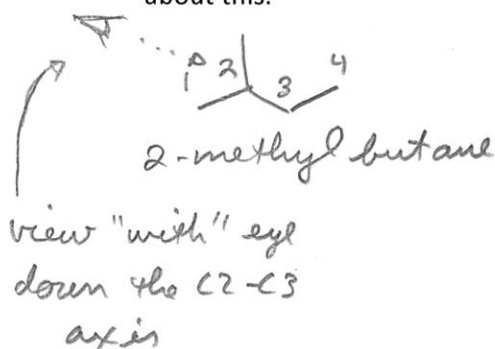 about this.
1 2 3 4
2-methyl butane
view "with" eye
down the C2-C3
axis